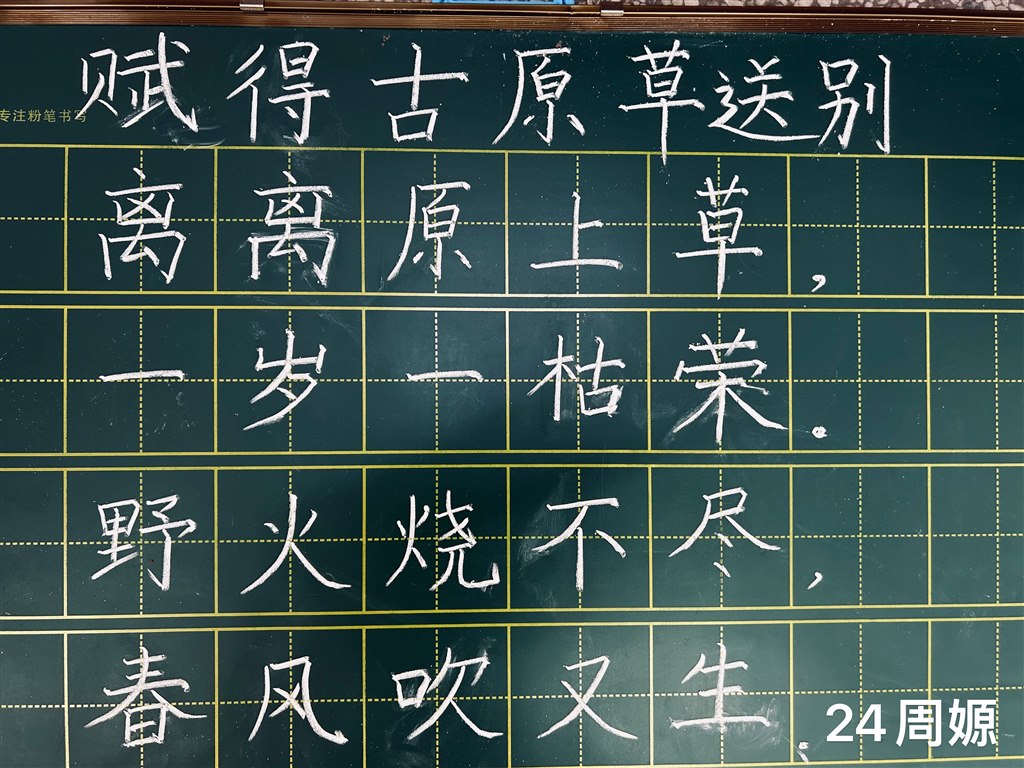 赋得古原草送别
专注粉笔书写
离离原上草，
一岁一枯荣。
野火烧不尽，
春风吹又生。
24周嫄